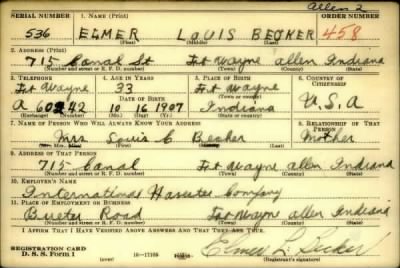 Allen 2
SERIAL NUMBER 1. NAME (Print) ORDER NUMBER
536 ELMER LOUIS BECKER 458
(First) (Middle) (Last)
2. ADDRESS (Print)
715 Canal St Ft Wayne Allen Indiana
(Number and street or R. F. D. number) (Town) (County) (State)
3. TELEPHONE 4. AGE IN YEARS 5. PLACE OF BIRTH 6. COUNTRY OF CITIZENSHIP
Ft Wayne 33 Ft Wayne
(Town) (County)
DATE OF BIRTH
A 60242 10 16 1907 Indiana U.S.A
(Exchange) (Number) (Mo.) (Day) (Yr.) (State or country)
7. NAME OF PERSON WHO WILL ALWAYS KNOW YOUR ADDRESS 8. RELATIONSHIP OF THAT PERSON
Mrs Louis C Becker Mother
(Mr., Mrs., Miss) (First) (Middle) (Last)
9. ADDRESS OF THAT PERSON
715 Canal Ft Wayne Allen Indiana
(Number and street or R. F. D. number) (Town) (County) (State)
10. EMPLOYER'S NAME
Company
11. PLACE OF EMPLOYMENT OR BUSINESS
Bueter Road Ft Wayne Allen Indiana
(Number and street or R. F. D. number) (Town) (County) (State)
I AFFIRM THAT I HAVE VERIFIED ABOVE ANSWERS AND THAT THEY ARE TRUE.
REGISTRATION CARD
D. S. S. Form 1 (over) 16—17105 Elmer L. Becker
(Registrant's signature)